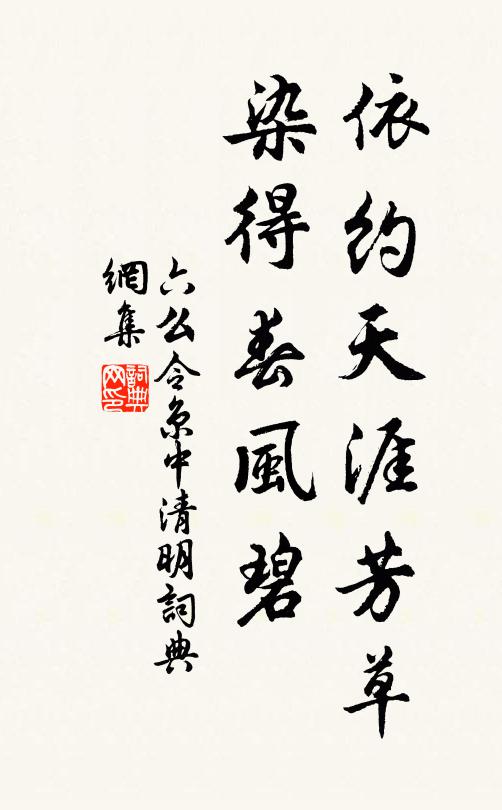 依約天涯芳草
染得春風碧
六么令京中清明詞典
網集
詞典
网印